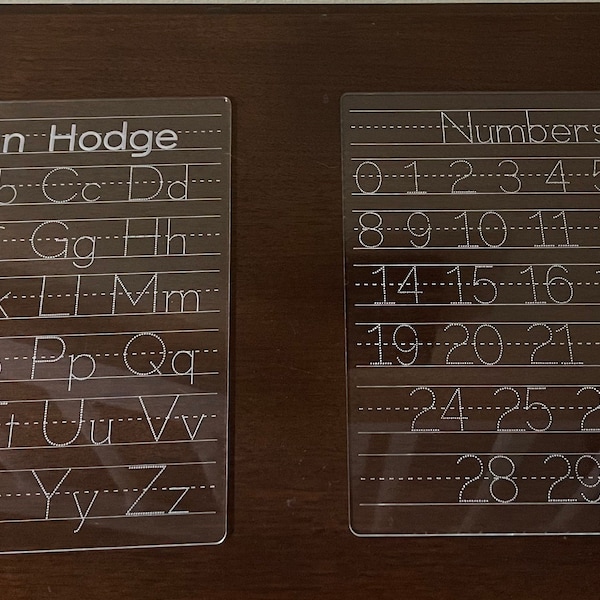 n Hodge
b Cc Dd
Gg Hh
k Ll Mm
Pp Qq
t Uu Vv
Yy Zz
Numbers
0 1 2 3 4 5
8 9 10 11
14 15 16
19 20 21
24 25 2
28 29